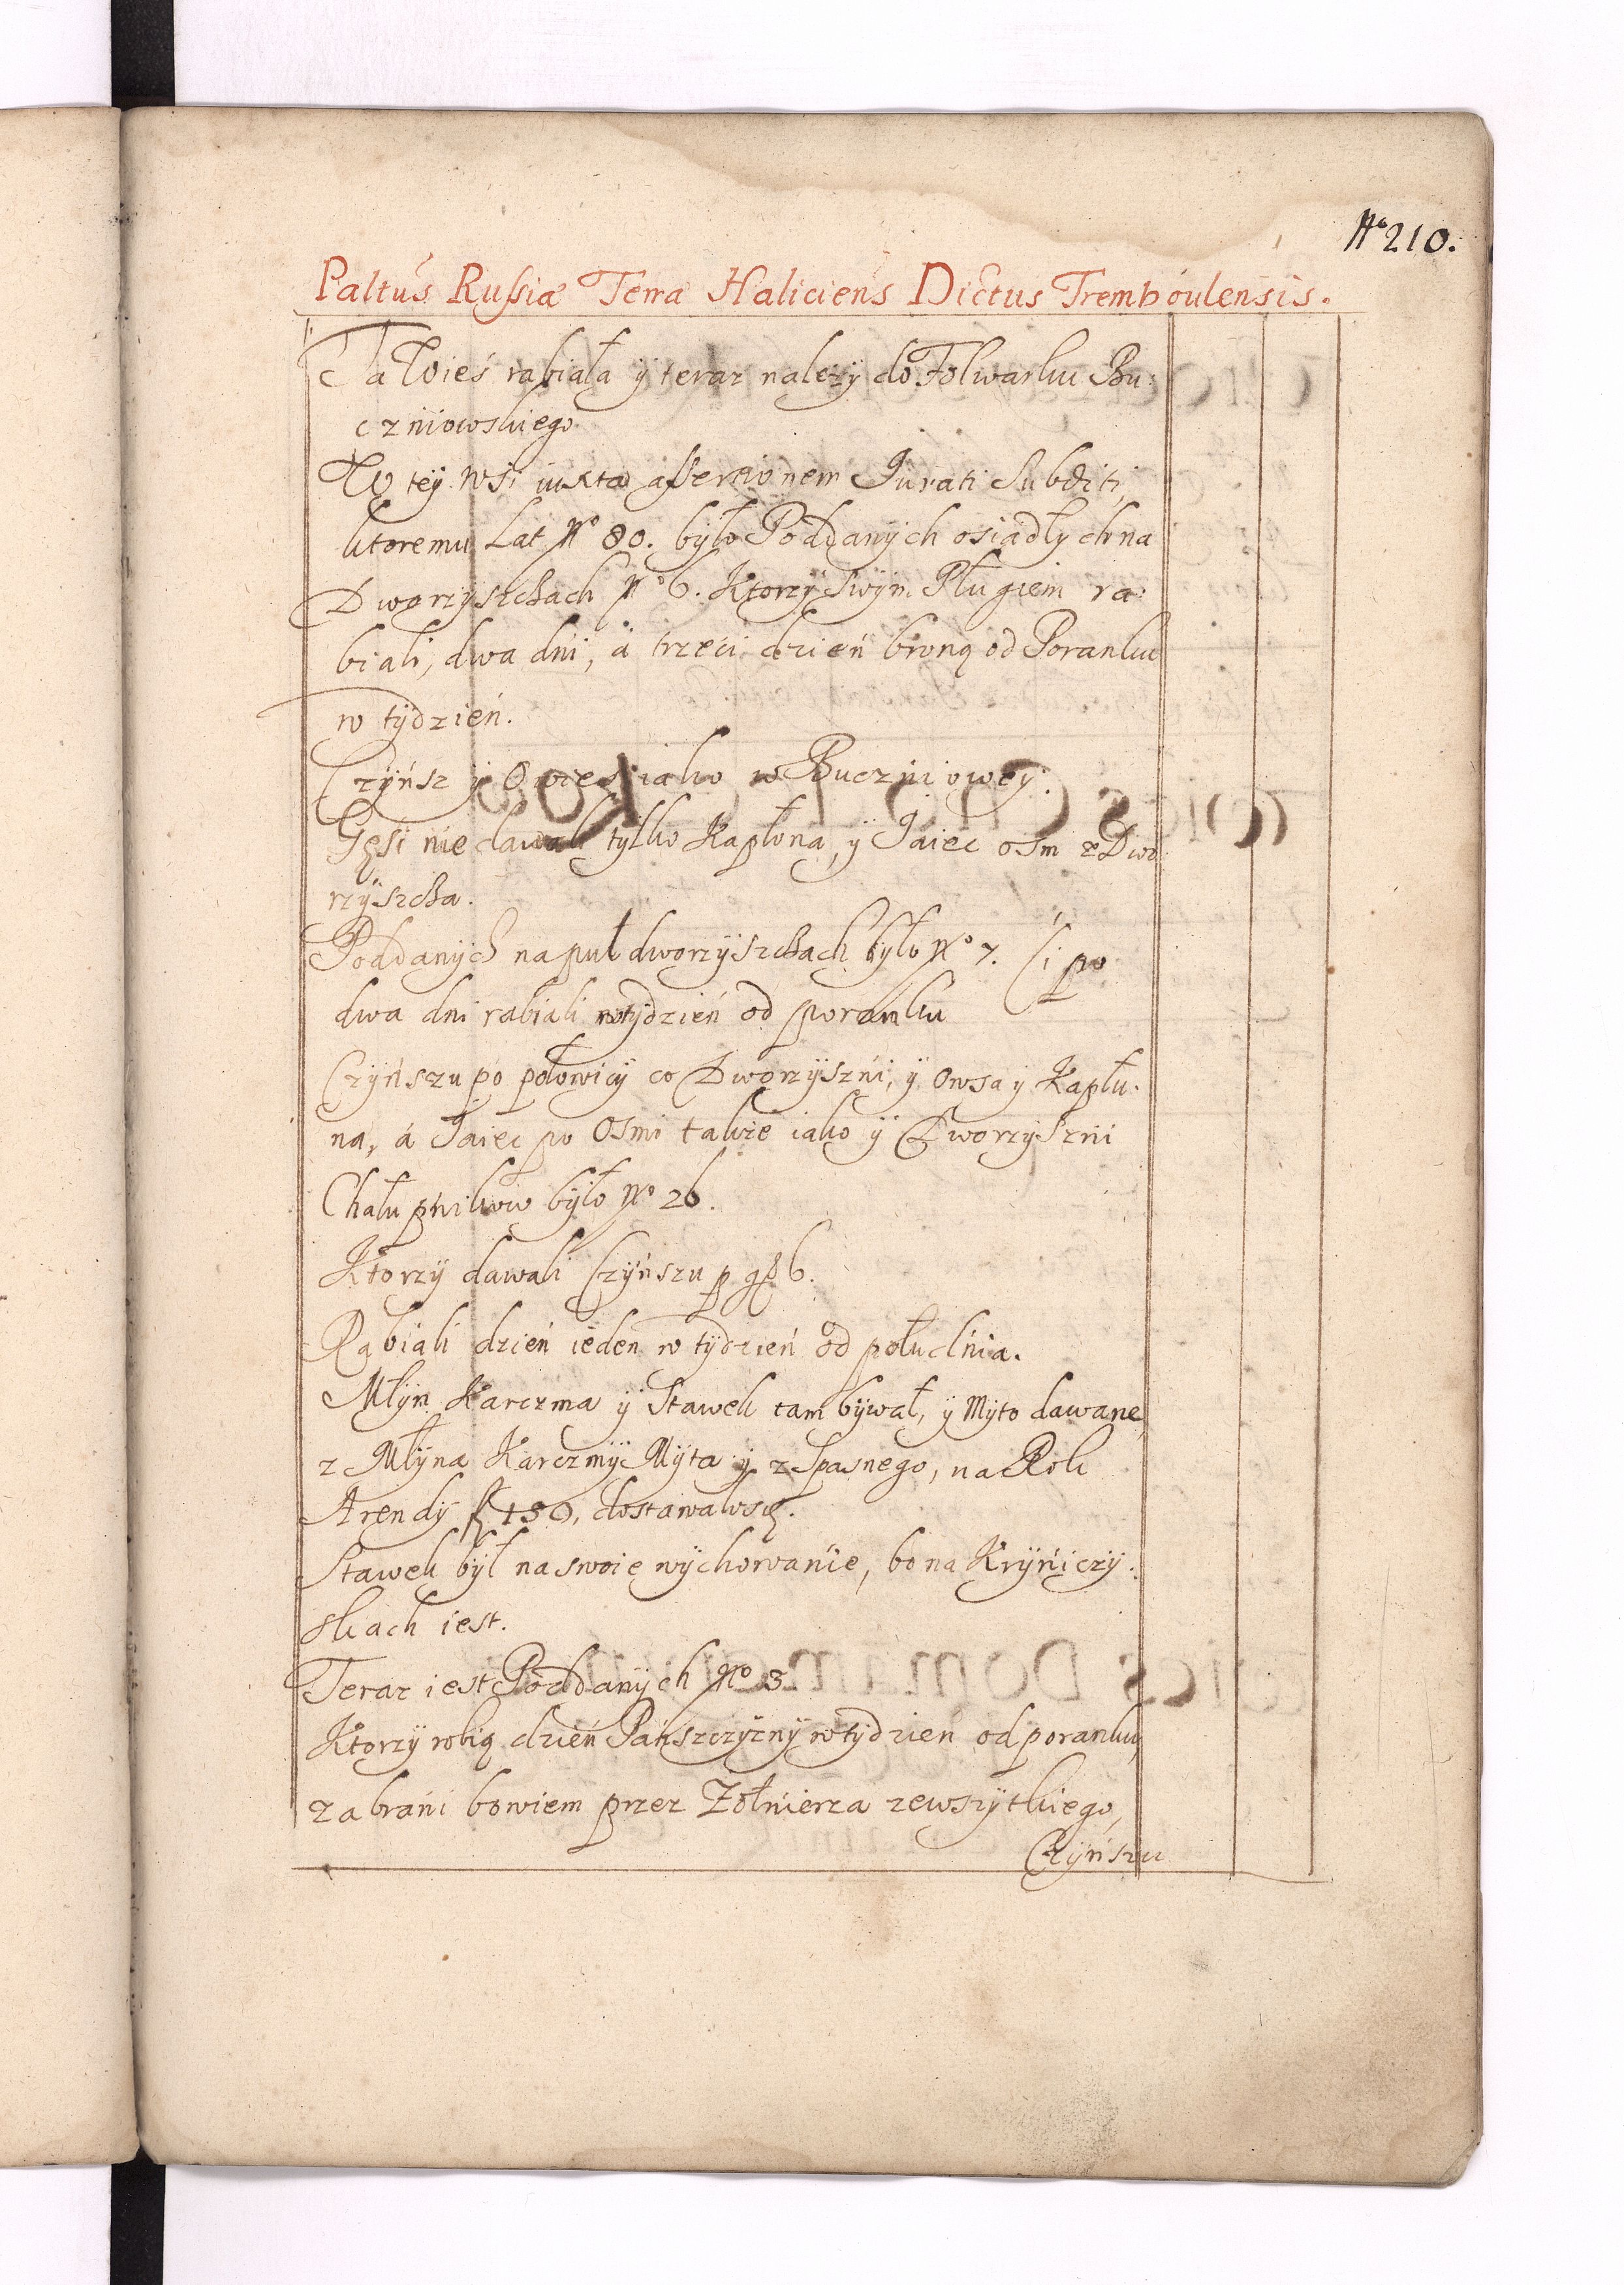 No 210.
Paltus Russiæ Terra Haliciens Dictus Tremboulensis.
Ta Wieś rabiała ÿ teraz należy do Folwarku Bu:
czniowskiego.
W teÿ Wsi iuxta assertionem Jurati Subditi,
ktoremu Lat No 80. było Poddanych osiadłych na
Dworzyszchach No 6. Ktorzÿ swÿm Pługiem ra:
biali, dwa dni, á trzeci dzień broną od Poranku
w tÿdzień.
Czÿńsz ÿ Owies iako w Buczniowey.
Gęsi nie dawali tylko Kapłona, ÿ Jaiec osm z Dwo
rzÿszcha.
Poddanych na puł dworzyszchach było No 7. Ci po
dwa dni rabiali w tÿdzień od poranku
Czÿńszu po połowicy co Dworzyszni, ÿ Owsa ÿ Kapłu:
na, á Jaiec po Osmi takze iako ÿ Dworzyszni
Chałupnikow było No 26.
Ktorzÿ dawali Czÿńszu p gr 6.
Rabiali dzień ieden w tÿdzień od południa.
Młÿn Karczma ÿ Stawek tam bÿwał, ÿ Mÿto dawane
z Młÿna Karczmÿ Mÿta ÿ z Spasnego, na Rok
Arendÿ f 130, dostawało się.
Stawek był na swoie wÿchowanie, bo na Krÿniczÿ:
skach iest.
Teraz iest Poddanÿch No 3
Ktorzÿ robią dzień Pańszczÿznÿ w tÿdzień od poranku,
zabrani bowiem przez Zołnierza ze wszÿtkiego,
Czÿńszu